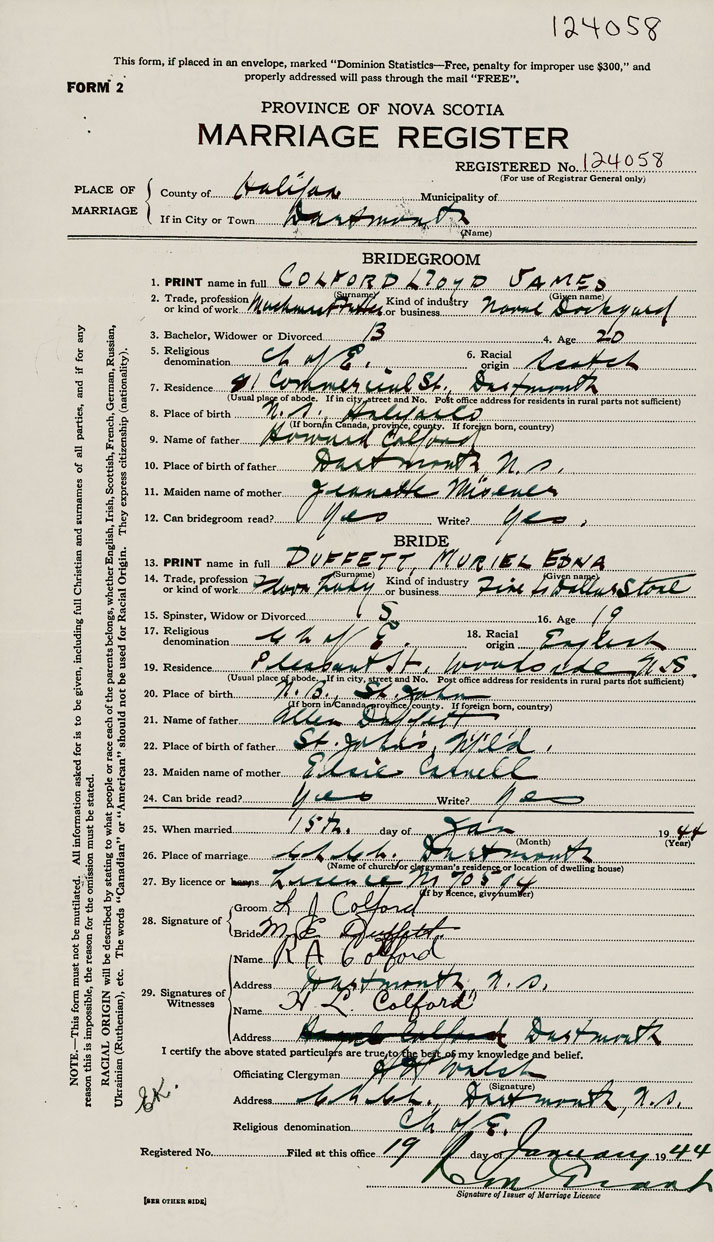 124058
This form, if placed in an envelope, marked "Dominion Statistics—Free, penalty for improper use $300," and
properly addressed will pass through the mail "FREE".
FORM 2
PROVINCE OF NOVA SCOTIA
MARRIAGE REGISTER
REGISTERED No. 124058
(For use of Registrar General only)
PLACE OF MARRIAGE
County of Halifax Municipality of
If in City or Town Dartmouth
(Name)
BRIDEGROOM
1. PRINT name in full COLFORD LLOYD JAMES
(Surname) (Given name)
2. Trade, profession or kind of work Kind of industry or business Naval Dockyard
3. Bachelor, Widower or Divorced B 4. Age 20
5. Religious denomination Ch of E. 6. Racial origin Scotch
7. Residence 91 Commercial St., Dartmouth
(Usual place of abode. If in city, street and No. Post office address for residents in rural parts not sufficient)
8. Place of birth N.S., Halifax Co
(If born in Canada, province, county. If foreign born, country)
9. Name of father Howard Colford
10. Place of birth of father Dartmouth N.S.
11. Maiden name of mother Jeanette Misener
12. Can bridegroom read? Yes Write? Yes.
BRIDE
13. PRINT name in full DUFFETT, MURIEL EDNA
(Surname) (Given name)
14. Trade, profession or kind of work Floor Lady Kind of industry or business Five to Dollar Store
15. Spinster, Widow or Divorced S 16. Age 19
17. Religious denomination Ch of E. 18. Racial origin English
19. Residence Pleasant St., Woodside N.S.
(Usual place of abode. If in city, street and No. Post office address for residents in rural parts not sufficient)
20. Place of birth N.B., St. John
(If born in Canada, province, county. If foreign born, country)
21. Name of father Allen Duffett
22. Place of birth of father St. John's, Nfld.
23. Maiden name of mother Elsie
24. Can bride read? Yes Write? Yes
25. When married 15th. day of Jan 1944
(Month) (Year)
26. Place of marriage Ch. Ch. Dartmouth
(Name of church or clergyman's residence or location of dwelling house)
27. By licence or banns Licence M 70574
(If by licence, give number)
28. Signature of
Groom L J Colford
Bride M. E Duffett
29. Signatures of Witnesses
Name R A Colford
Address Dartmouth, N.S.
Name H L. Colford
Address Dartmouth
I certify the above stated particulars are true to the best of my knowledge and belief.
Officiating Clergyman Walsh
(Signature)
Address Ch. Ch., Dartmouth, N.S.
Religious denomination Ch of E.
Registered No. Filed at this office 19 day of January 1944
Signature of Issuer of Marriage Licence
[SEE OTHER SIDE]
NOTE.—This form must not be mutilated. All information asked for is to be given, including full Christian and surnames of all parties, and if for any
reason this is impossible, the reason for the omission must be stated.
RACIAL ORIGIN will be described by stating to what people or race each of the parents belongs, whether English, Irish, Scottish, French, German, Russian,
Ukrainian (Ruthenian), etc. The words "Canadian" or "American" should not be used for Racial Origin. They express citizenship (nationality).